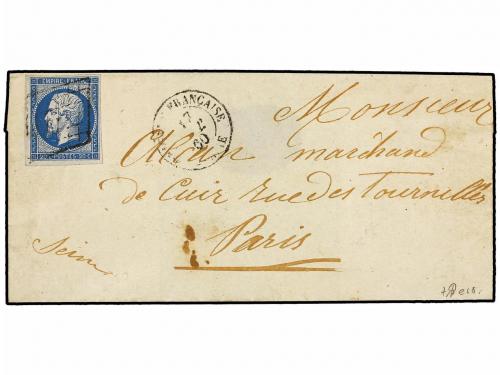 EMPIRE FRANC
FRANÇAISE
17
60
Monsieur
marchand
de Cuir rue des Tournelles
Paris
Seine